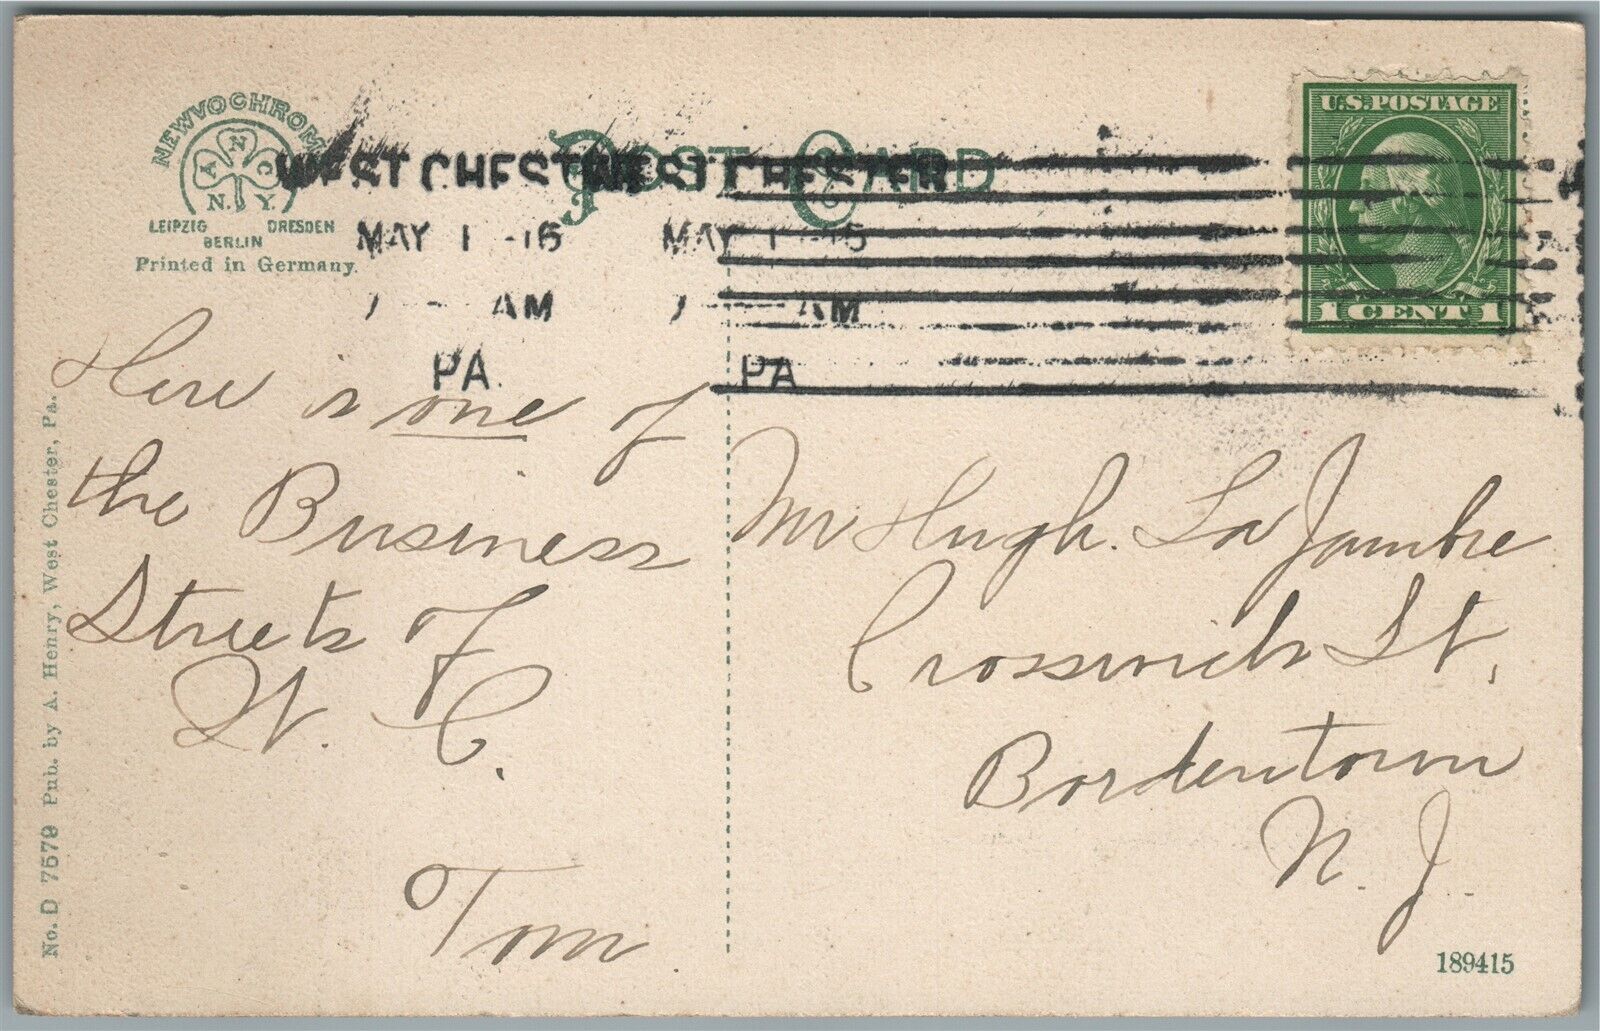 NEWVOCHROME
A N C
N. Y.
LEIPZIG DRESDEN
BERLIN
Printed in Germany.
POST CARD
WEST CHESTER WEST CHESTER
MAY 1 -15 MAY 1 -15
7 - AM 7 - AM
PA. PA
U.S.POSTAGE
1 CENT 1
Here is one of
the Business
Streets of
W. C.
Tom.
Mr Hugh. La Jambre
Crosswicks St.,
Bordentown
N. J.
No. D 7579 Pub. by A. Henry, West Chester, Pa.
189415